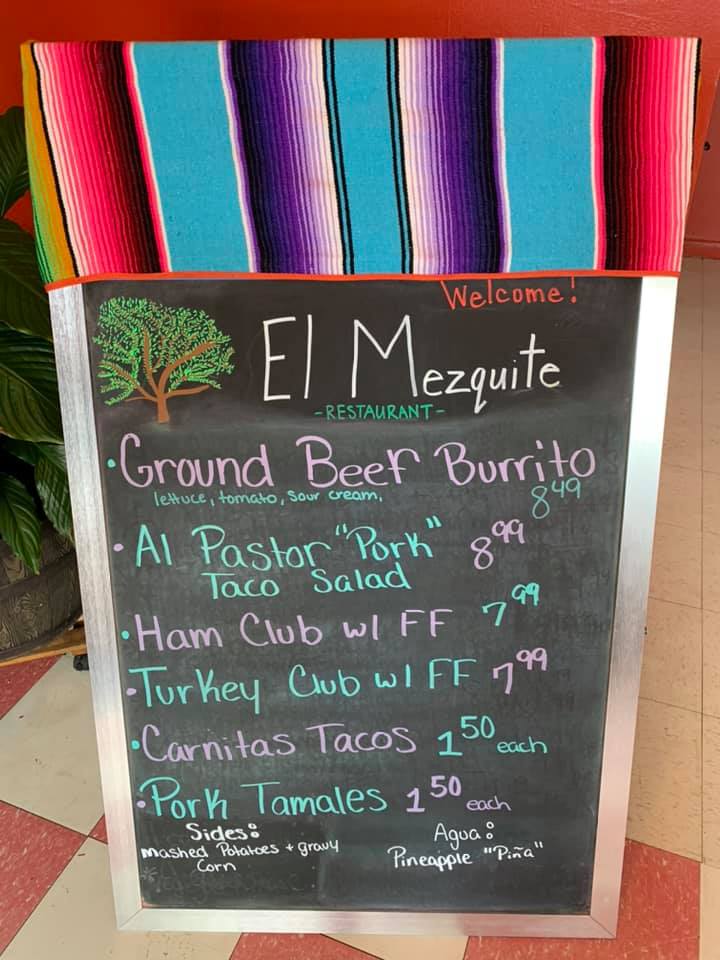 Welcome!
El Mezquite
-RESTAURANT-
·Ground Beef Burrito
lettuce, tomato, sour cream, 8.49
·Al Pastor "Pork" 8.99
Taco Salad
·Ham Club w/ FF 7.99
·Turkey Club w/ FF 7.99
·Carnitas Tacos 1.50 each
·Pork Tamales 1.50 each
Sides:
Mashed Potatoes + gravy
Corn
Agua:
Pineapple "Piña"